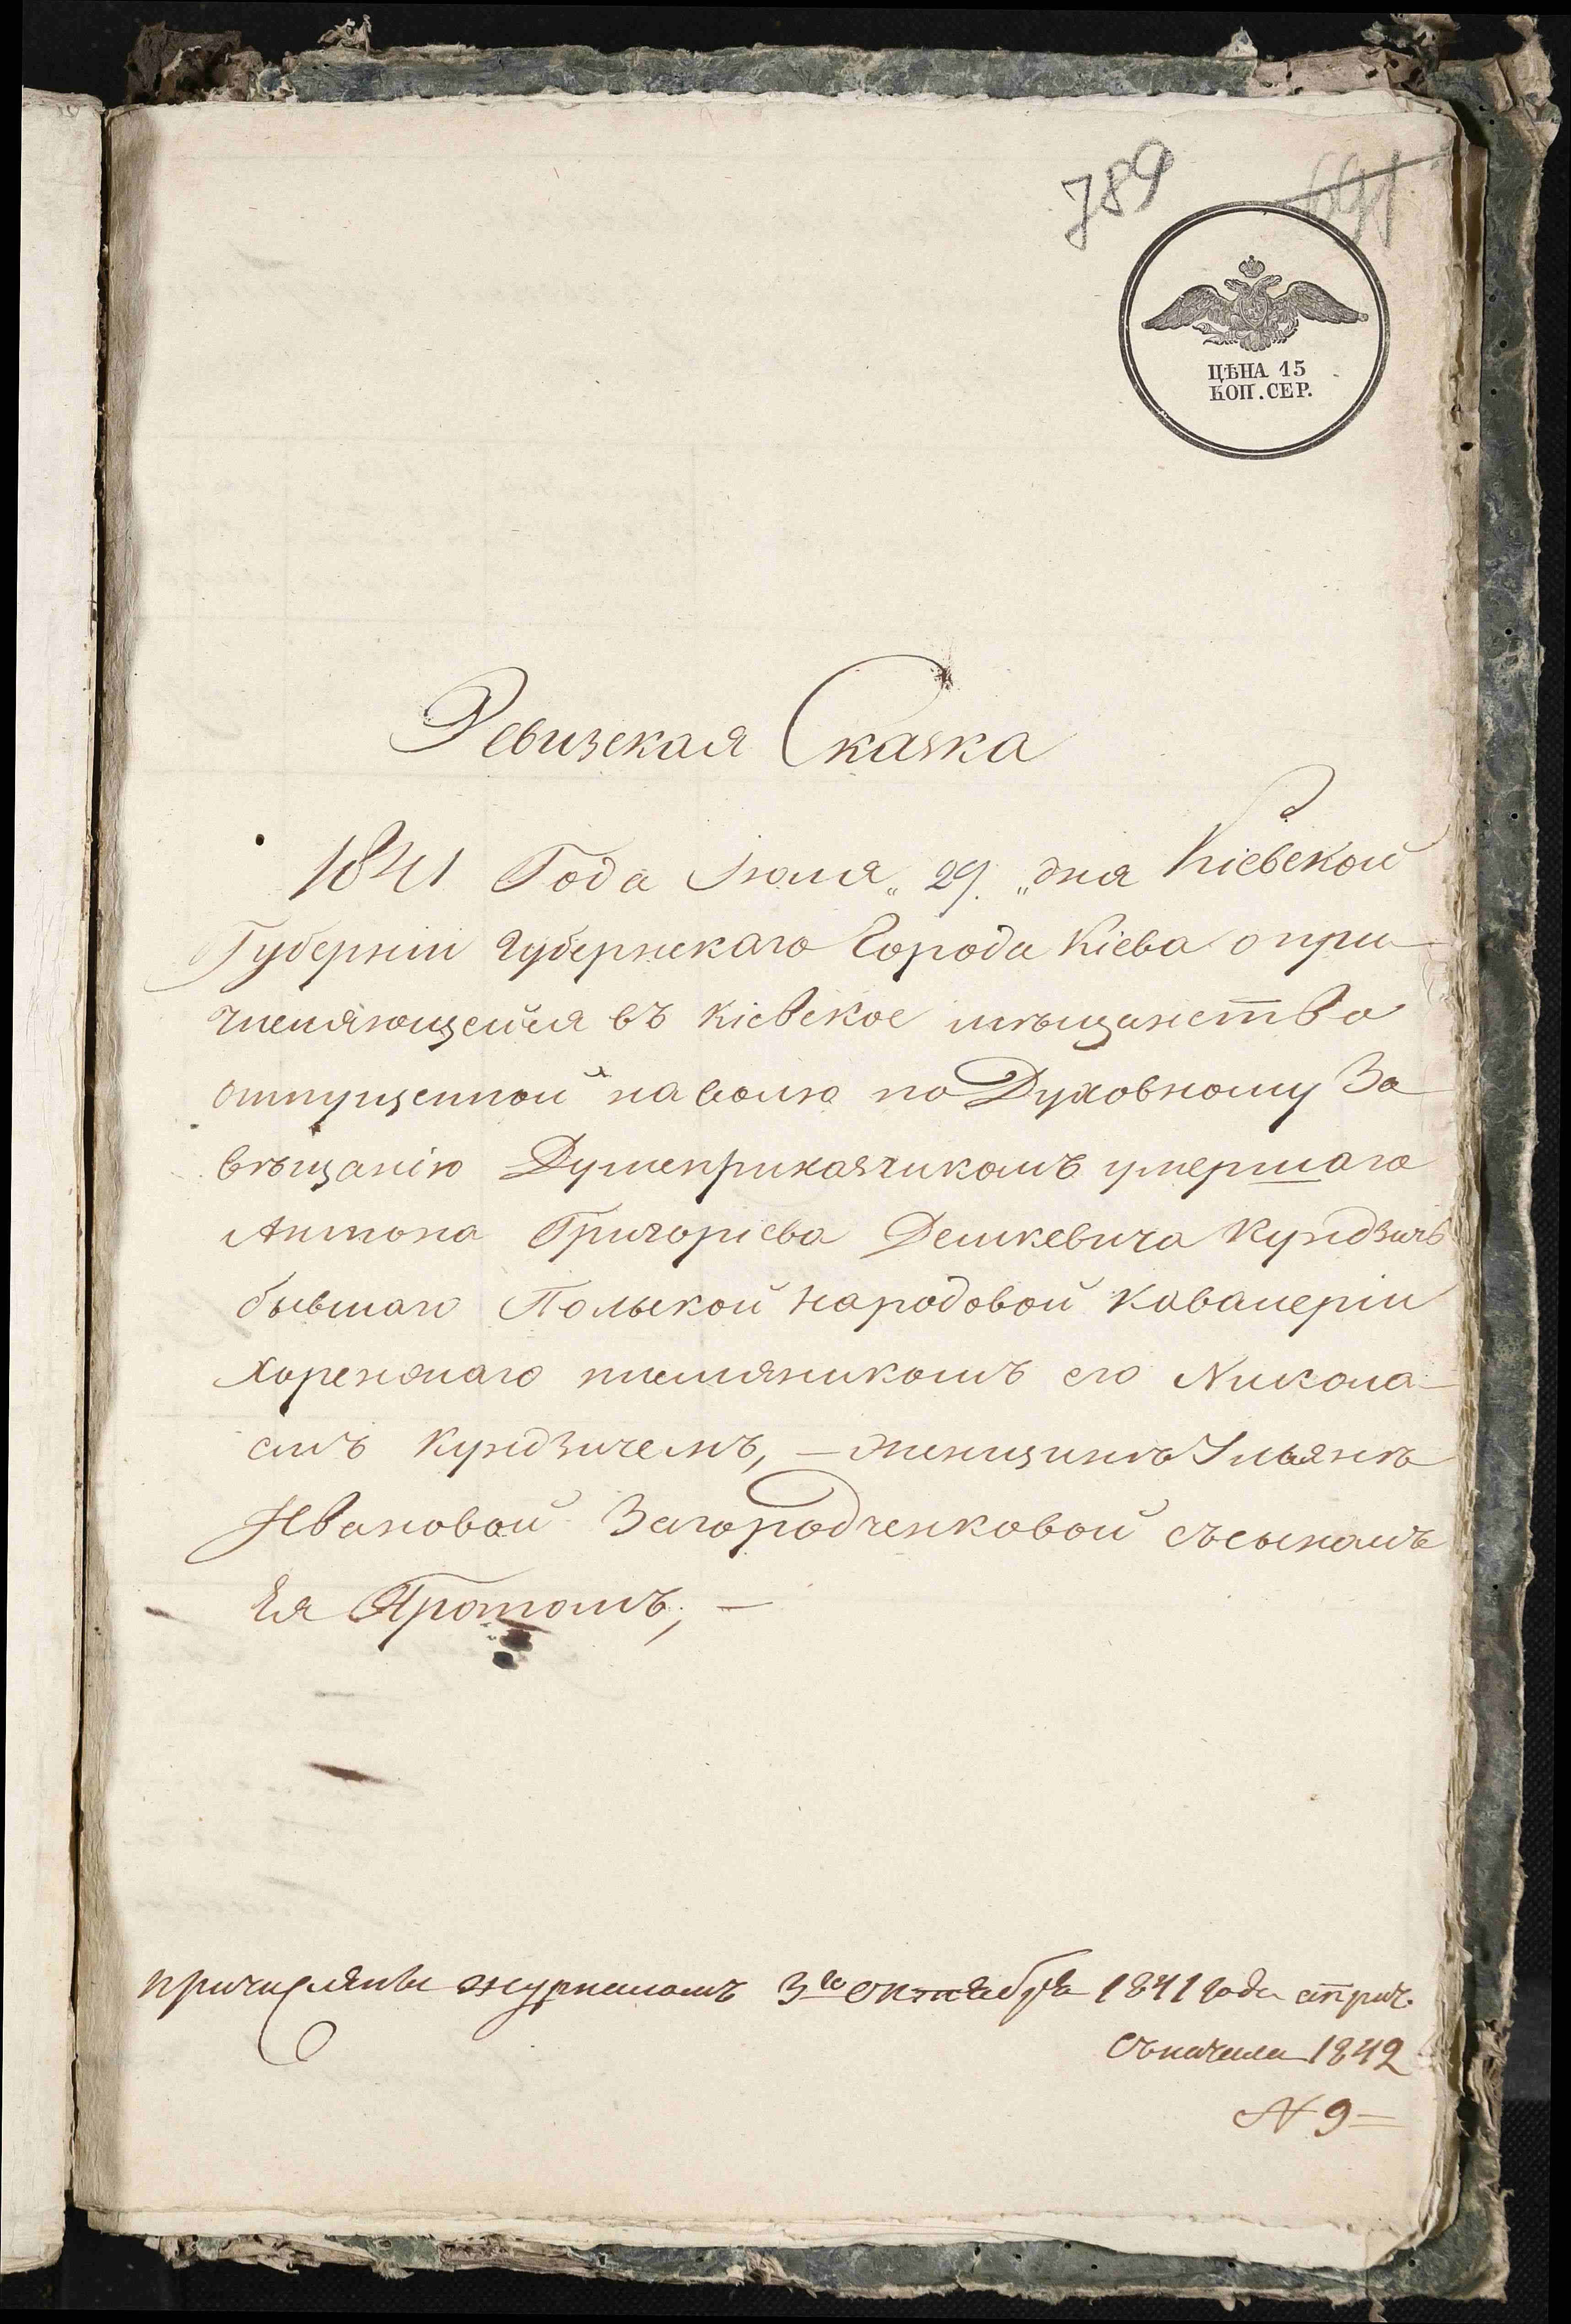 789
691
ЦѢНА 15
КОП. СЕР.
Ревизская Сказка
1841 Года Іюля „ 29. „ дня Кіевской
Губерніи Губернскаго Города Кіева о при
численяющейся въ Кіевское мѣщанство
отпущенной на волю по Духовному За
вѣщанію Душеприказчикомъ умершаго
Антона Григорьева Дешкевича Кундзичъ
бывшаго Польской Народовой Кавалеріи
Хоренжаго племяникомъ его Никола
емъ Кундзичемъ, — женщинѣ Ульянѣ
Ивановой Загородченковой съ сыномъ
Ея Протомъ, —
причислены журналомъ 3го октября 1841 года
съ начала 1842
№ 9